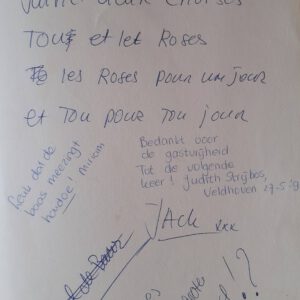 J'aime deux choses
Tou et let Roses
les Roses pour un jour
et Tou pour Tou jour
Leuk dat de
baas meezingt
hardoe! Miriam
Bedankt voor
de gastvrijheid
Tot de volgende
keer! Judith Strijbos,
Veldhoven 27-5-'19
JAck xxx